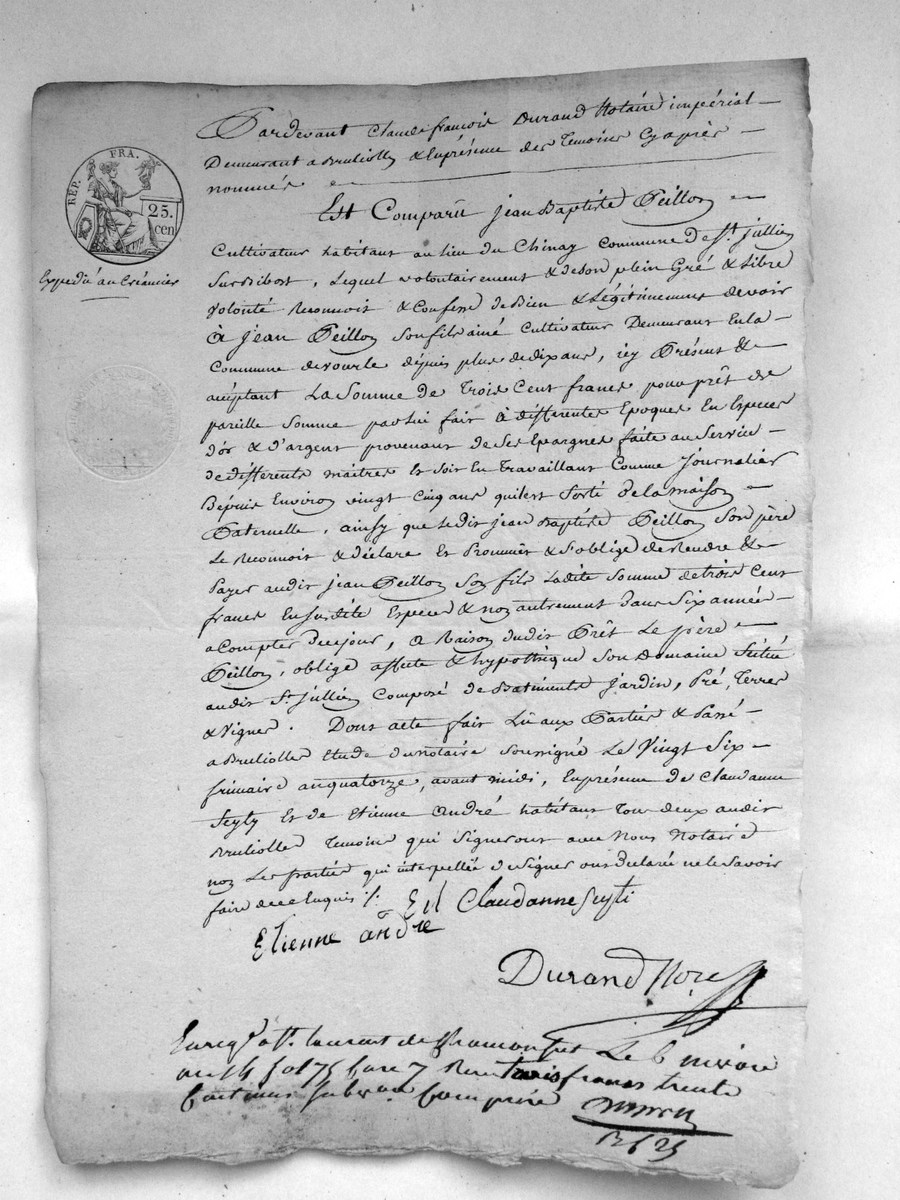 REP. FRA.
25.
cen
Expedié au Créancier
Pardevant Claude françois Durand Notaire impérial
Demeurant a Brulliolle & Enprésence des Temoins Cyaprès
nommés
Est Comparû jean Baptiste Peillon
Cultivateur habitant au lieu du Chinay Commune de St. jullien
Sur Bibost, Lequel volontairement & deson plein Gré & Libre
volonté Reconnoit & Confesse de Bien & Légitimement devoir
à jean Peillon son fils ainé Cultivateur Demeurant En la
Commune devourle depuis plus de dix ans, icy Présent &
acceptant La Somme de Trois Cent francs pour prêt de
pareille Somme par lui fait à differentes Epoques En Especes
d'or & d'argent provenant de Ses Epargnes faite au Service
de differents maitres Et soit En Travaillant Comme journalier
Depuis Environ vingt Cinq ans quilest Sorti dela maison
Paternelle, ainsy que ledit jean Baptiste Peillon Son père
Le Reconnoit & déclare Et Promet & s'oblige de Rendre &
Payer audit jean Peillon Son fils Ladite Somme detrois Cent
francs En susdite Espece & non autrement dans Six année
a Compter de ce jour, a Raison dudit Prêt Le père
Peillon, oblige affecte & hypothèque Son Domaine Scitué
audit St. jullien Composé de Batiments jardin, Pré, Terres
& vignes. Dont acte fait Lû aux Parties & Passé
a Brulliolle Etude du notaire Soussigné Le Vingt Six
frimaire an quatorze, avant midi, En présence de Claudanne
Seyty Et de Etienne André habitant Tous deux audit
Brulliolle Temoins qui Signeront avec Nous Notaire
non Les parties qui interpellée de Signer ont Déclaré ne le Savoir
faire de ce Enquis /.
Claudanne Seyti
Etienne andré
Durand Nore
Enregé a St. laurent de Chamousset Le 6 nivose
an 14 fol 75 Case 7 Recu trois francs trente
Centimes Subvon Comprise